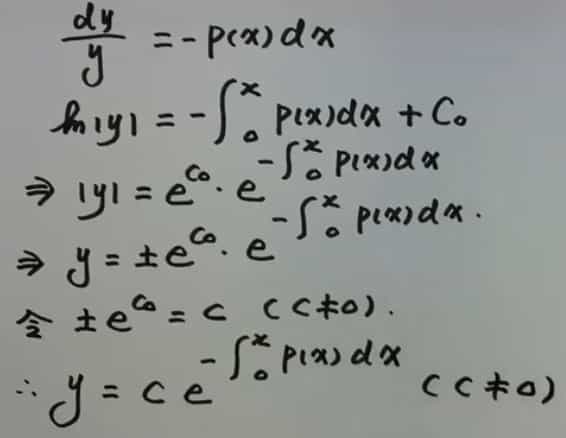 dy/y = -p(x)dx
ln|y| = -∫₀ˣ p(x)dx + C₀
⇒ |y| = e^{C₀} · e^{-∫₀ˣ p(x)dx}
⇒ y = ±e^{C₀} · e^{-∫₀ˣ p(x)dx}.
令 ±e^{C₀} = C (C≠0).
∴ y = C e^{-∫₀ˣ p(x)dx} (C≠0)